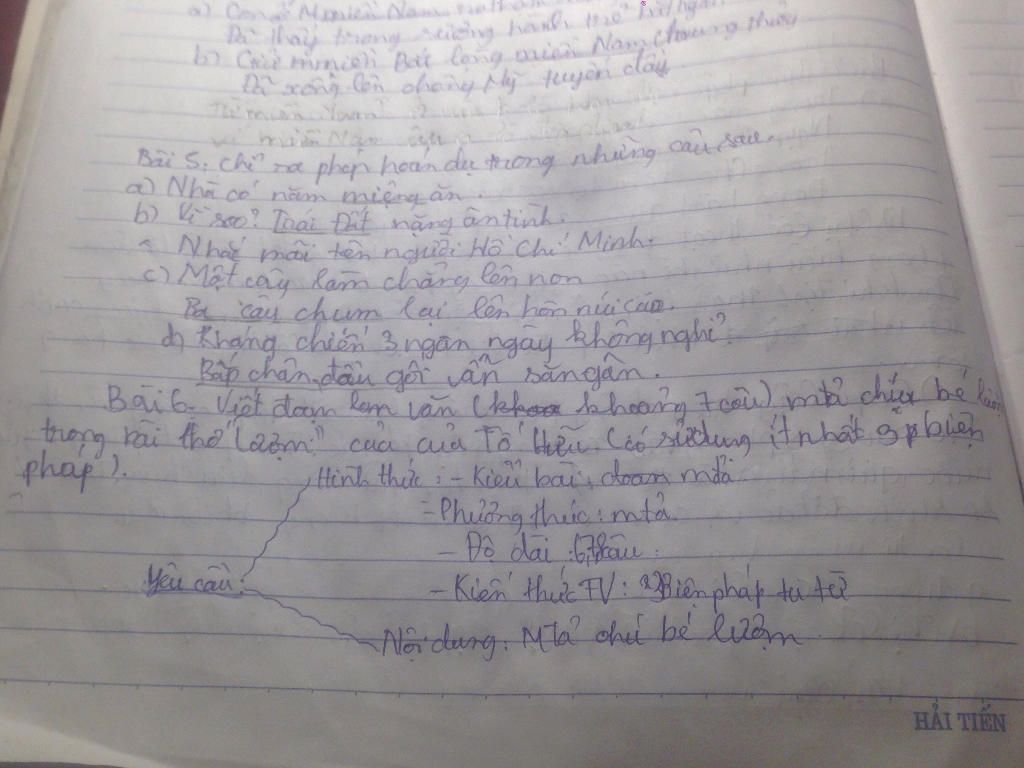 a) Con ở Miền Nam ra thăm
Đã thấy trong sương hàng tre
b) Gửi miền Bắc lòng miền Nam chung thủy
Đã xông lên chống Mỹ tuyến đầu
Bài 5: Chỉ ra phép hoán dụ trong những câu sau.
a) Nhà có năm miệng ăn.
b) Vì sao? Trái Đất nặng ân tình.
Nhắc mãi tên người Hồ Chí Minh.
c) Một cây làm chẳng lên non
Ba cây chụm lại lên hòn núi cao.
d) Kháng chiến 3 ngàn ngày không nghỉ
Bắp chân, đầu gối vẫn săn gân.
Bài 6. Viết đoạn văn (khoảng 7 câu) mtả chú bé
trong bài thơ "Lượm" của của Tố Hữu (có sử dụng ít nhất 3 biện
pháp).
Hình thức: - Kiểu bài: đoạn mtả
- Phương thức: mtả
- Độ dài: câu.
Yêu cầu:
- Kiến thức TV: Biện pháp tu từ
Nội dung: Mtả chú bé lượm
HẢI TIẾN